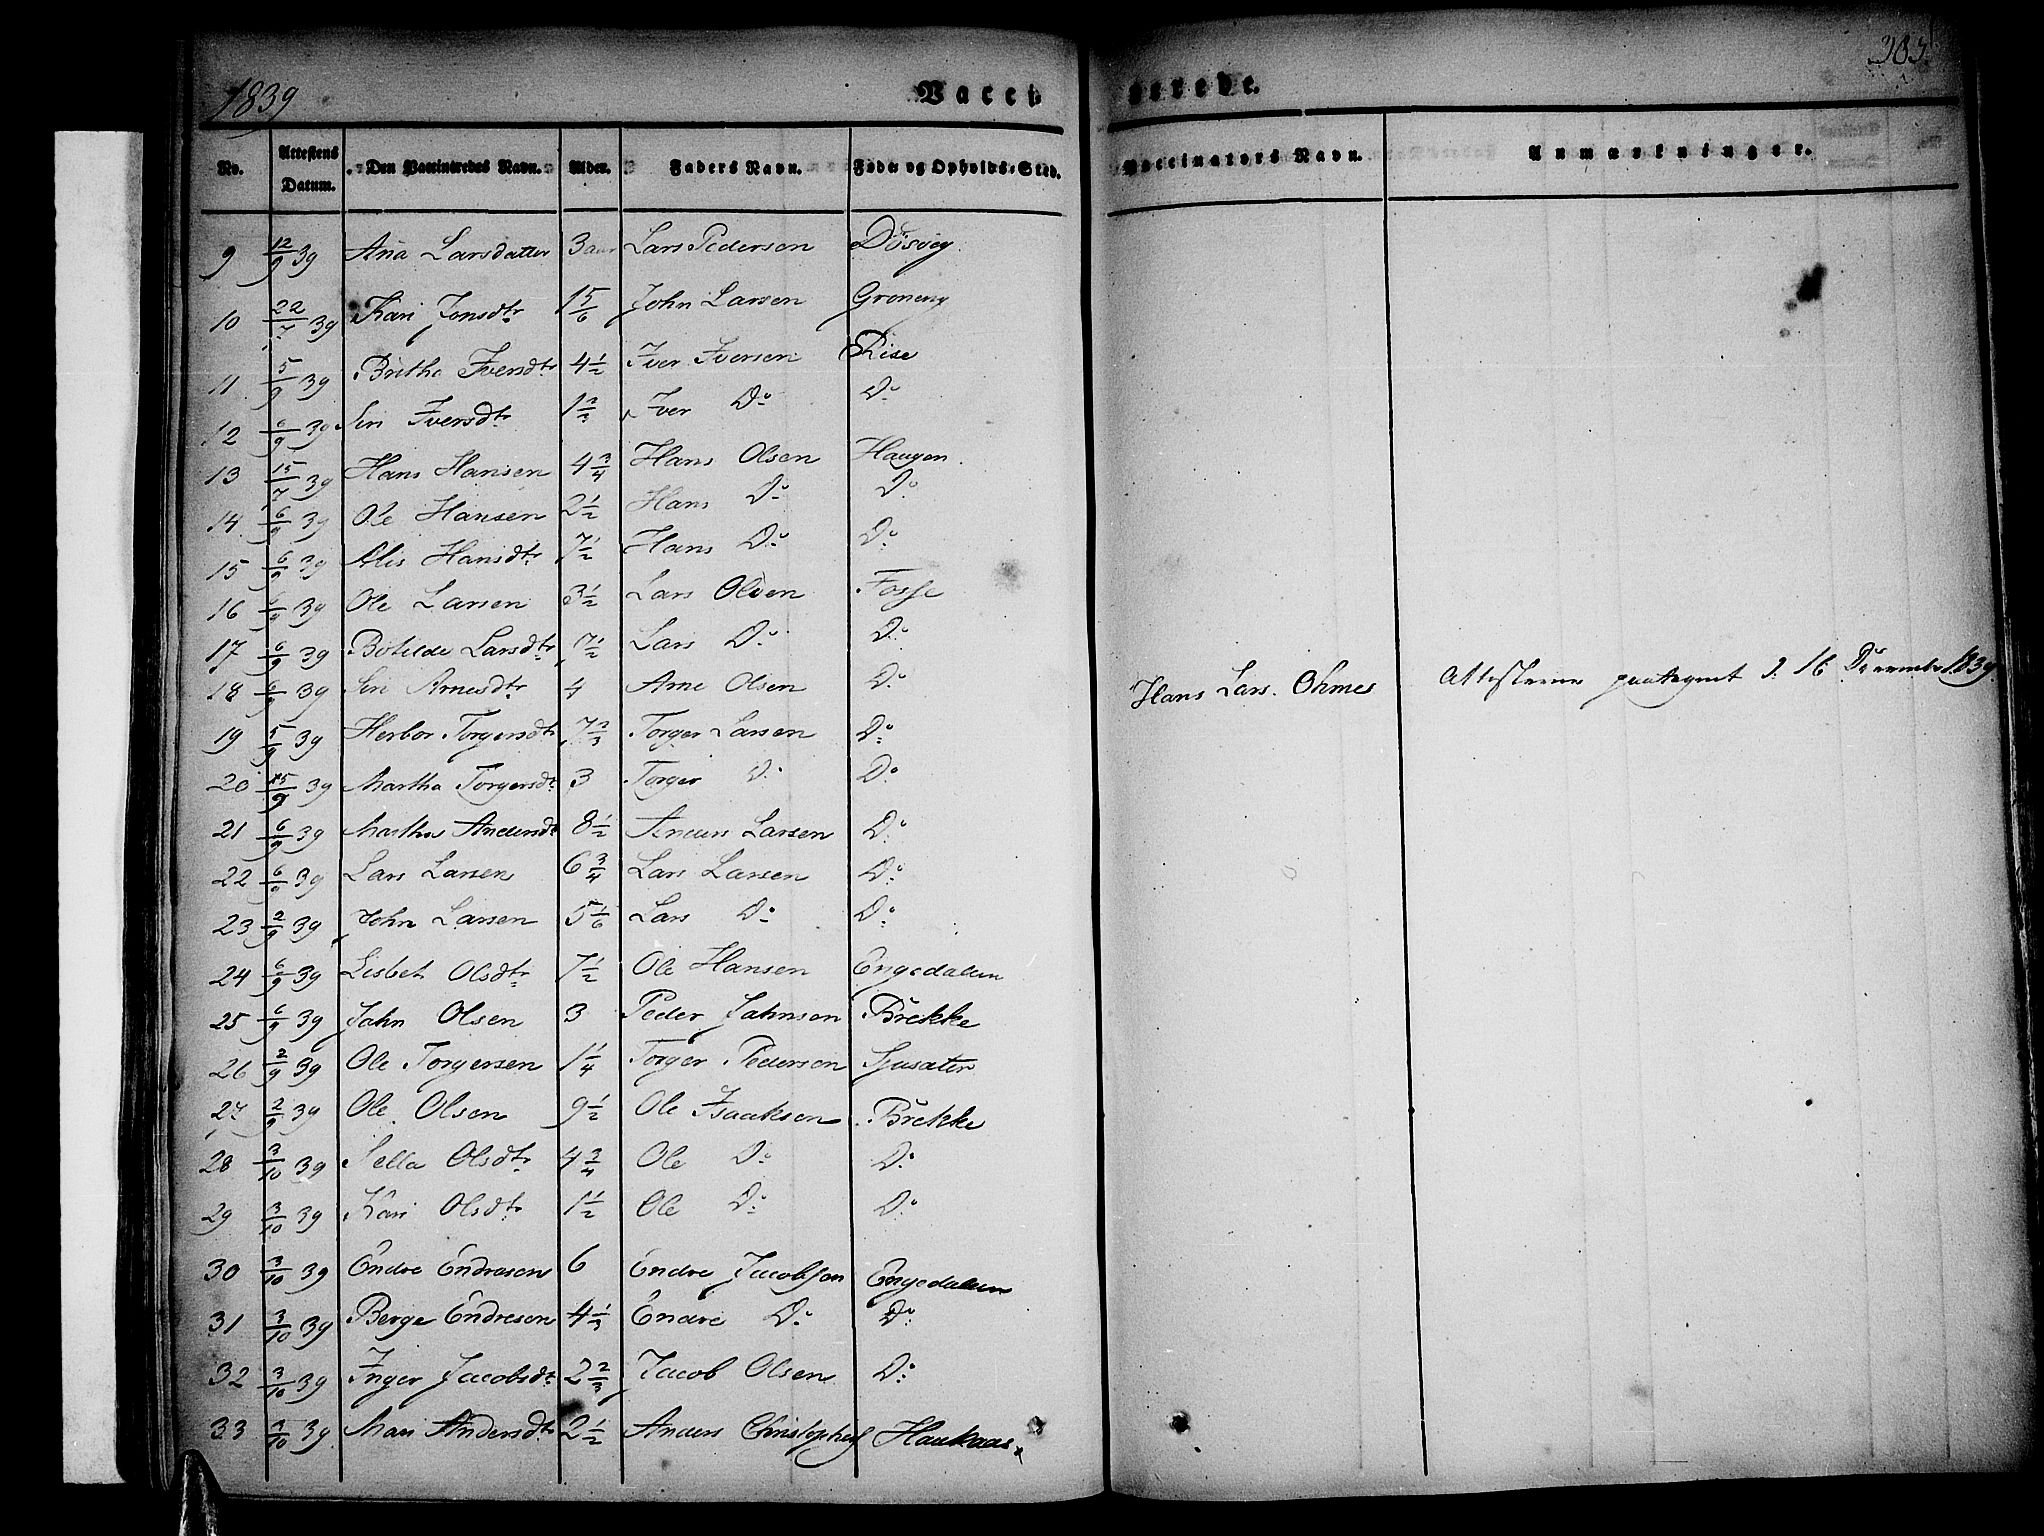 1839 Vacci nerede. 303.
No. Attestens Datum. Den Vaccineredes Navn. Alder. Faders Navn. Føde og Opholds-Sted. Vaccinators Navn. Anmærkninger.
9 12/9 39 Ana Larsdatter 3 aar Lars Pedersen
10 22/7 39 Kari Jonsdtr 1 5/6 John Larsen Groneng
11 5/9 39 Britha Iversdtr 4 1/2 Iver Iversen Rise
12 6/9 39 Siri Iversdtr 1 2/3 Iver Do Do
13 15/7 39 Hans Hansen 4 3/4 Hans Olsen Haugen
14 6/9 39 Ole Hansen 2 1/2 Hans Do Do
15 6/9 39 Alis Hansdtr 7 1/2 Hans Do Do
16 6/9 39 Ole Larsen 3 1/2 Lars Olsen Fosse
17 6/9 39 Botilde Larsdtr 7 1/2 Lars Do Do
18 6/9 39 Siri Arnesdtr 4 Arne Olsen Do Hans Lars. Ohmes Attesterne paategnet d. 16 December 1839.
19 5/9 39 Herbor Torgersdtr 7 2/3 Torger Larsen Do
20 15/9 39 Martha Torgersdtr 3 Torger Do Do
21 6/9 39 Martha Andersdtr 8 1/2 Anders Larsen Do
22 6/9 39 Lars Larsen 6 3/4 Lars Larsen Do
23 2/9 39 John Larsen 5 1/6 Lars Do Do
24 6/9 39 Lisbet Olsdtr 7 1/2 Ole Hansen Engedalen
25 6/9 39 John Olsen 3 Peder Johnsen Brekke
26 2/9 39 Ole Torgersen 1 1/4 Torger Pedersen
27 2/9 39 Ole Olsen 9 1/2 Ole Isaaksen Brekke
28 3/10 39 Sella Olsdtr 4 3/4 Ole Do Do
29 3/10 39 Kari Olsdtr 1 1/2 Ole Do Do
30 3/10 39 Endre Endresen 6 Endre Jacobsen Engedalen
31 3/10 39 Berge Endresen 4 1/3 Endre Do Do
32 3/10 39 Inger Jacobsdtr 2 2/3 Jacob Olsen Do
33 3/10 39 Mari Andersdtr 2 1/2 Anders Christophers Haukaas